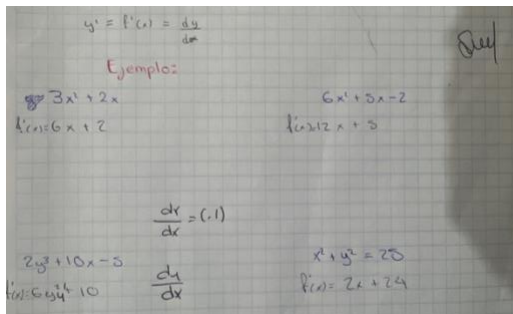 y' = f'(x) = dy/dx
Ejemplo:
3x² + 2x
f'(x)=6x + 2
6x² + 5x - 2
f'(x)=12x + 5
dx/dx = (.1)
2y³ + 10x - 5
f'(x)=6y² + 10
dy/dx
x² + y² = 25
f'(x) = 2x + 2y